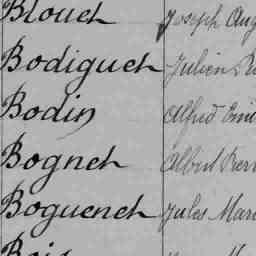 Blouet Joseph Aug
Bodiguet Julien
Bodin Alfred Emi
Bognet Albert
Boguenet Jules Mari
Bois